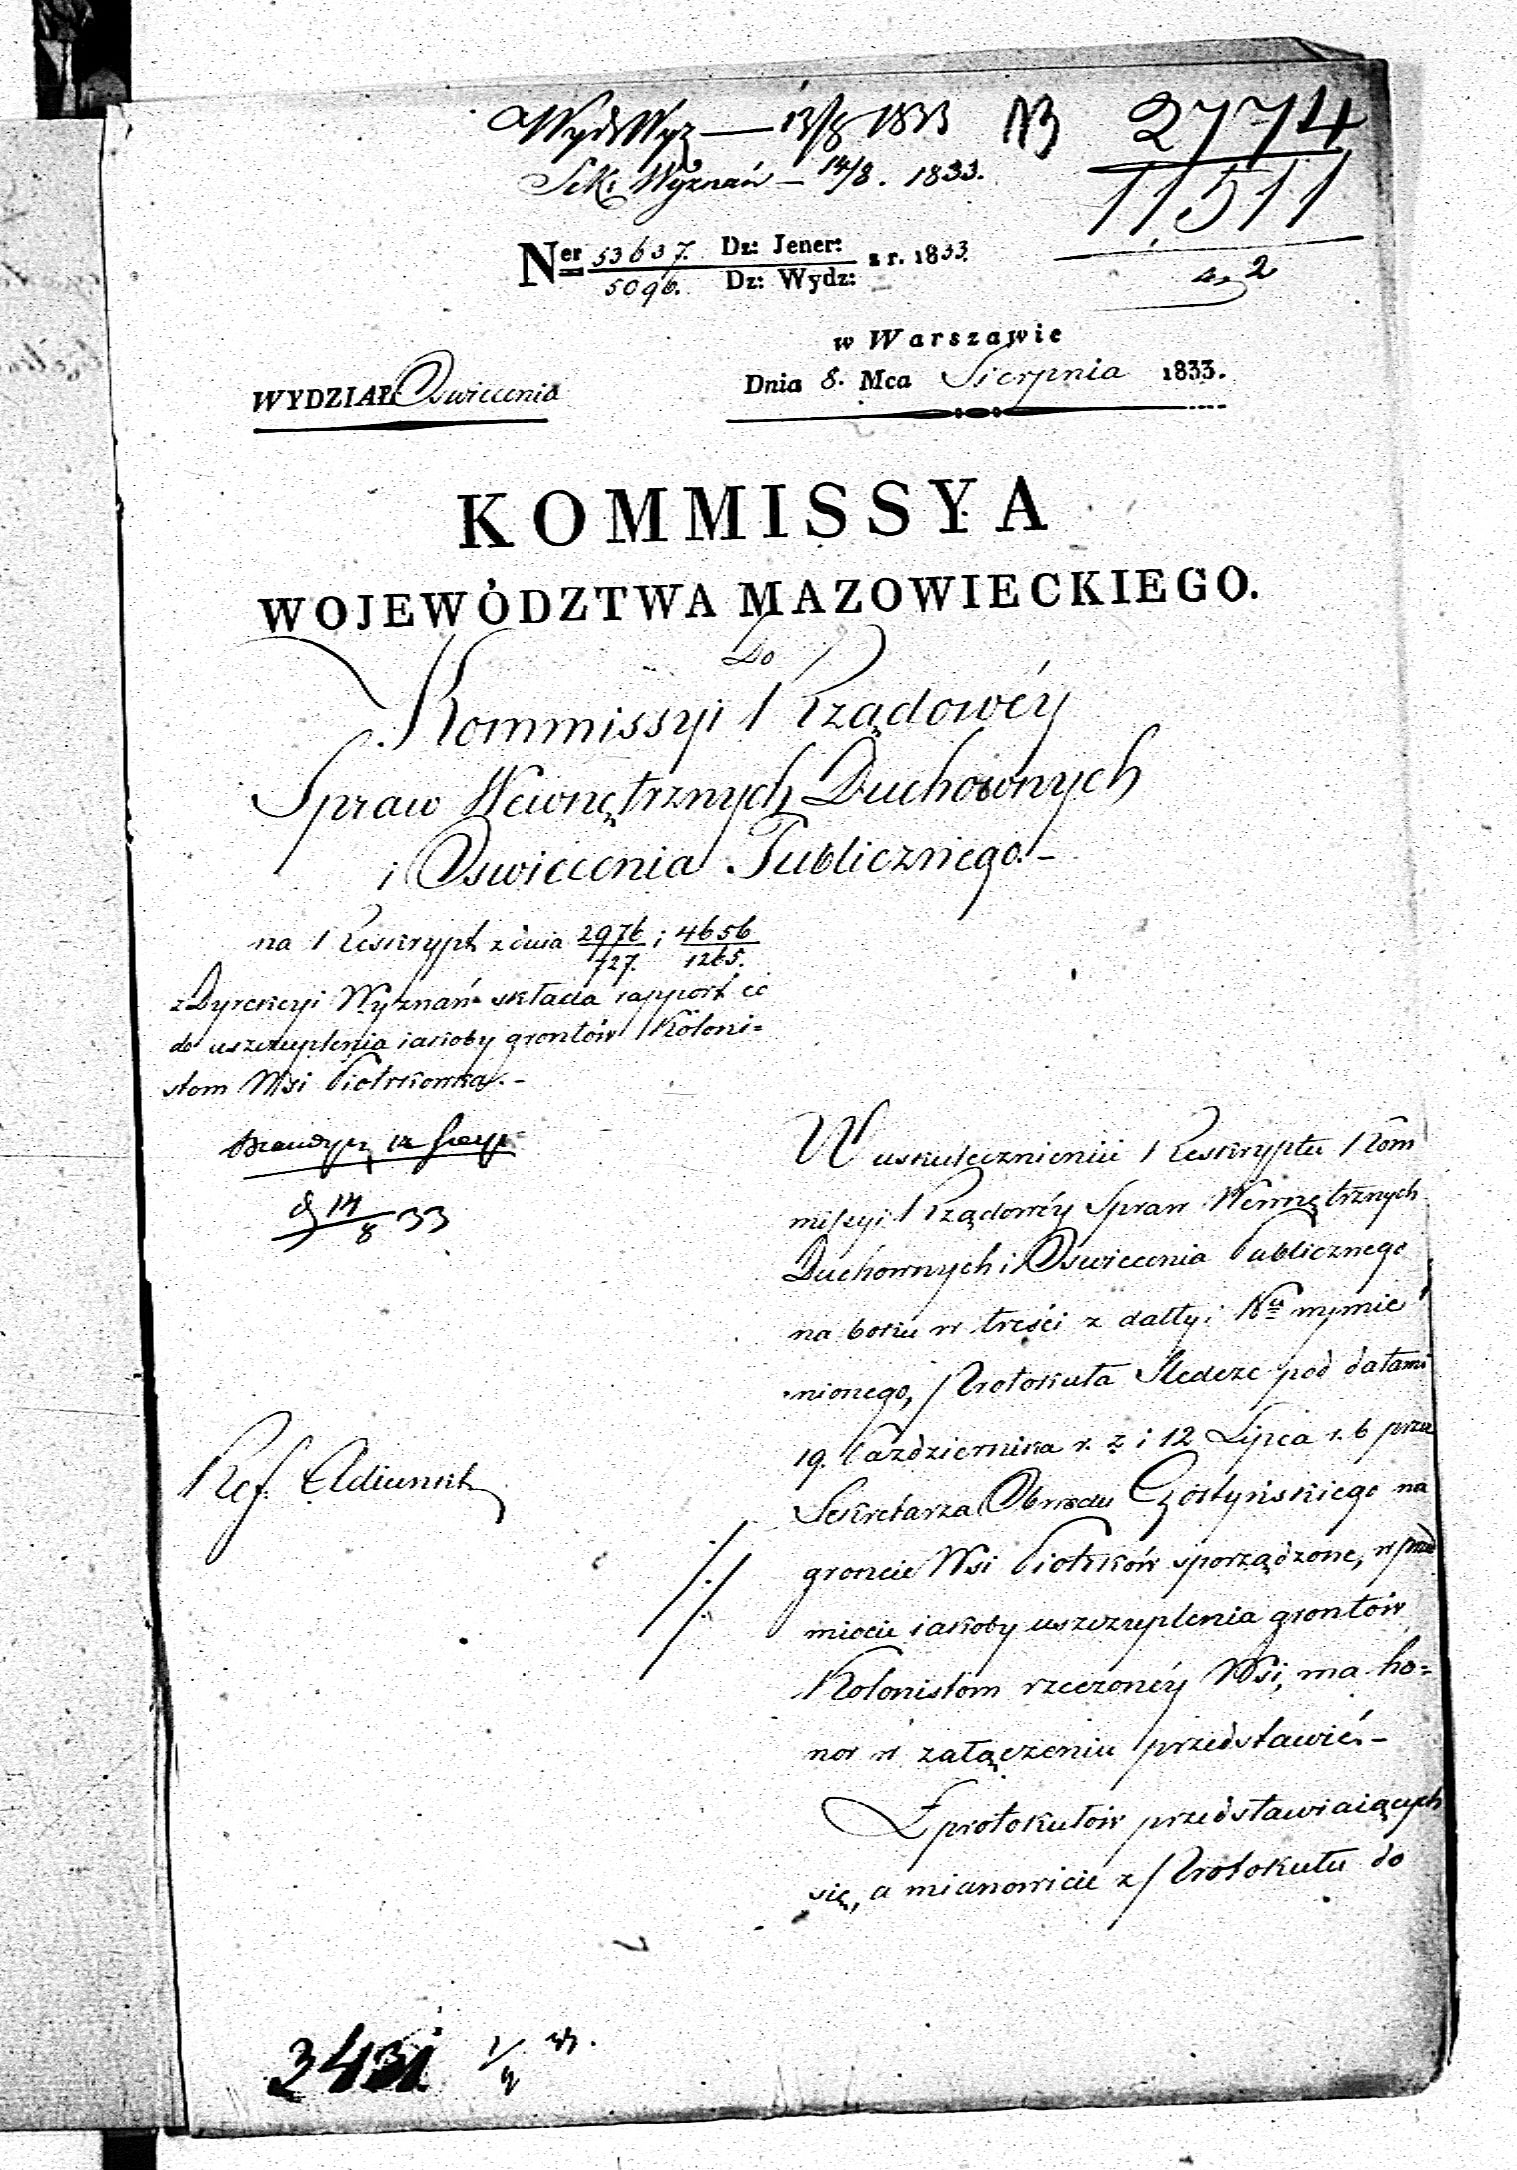 WydWyz — 13/8 1833 NB 2774
Sek: Wyznań — 14/8. 1833. 11511
Ner 53637. Dz: Jener: z r. 1833.
5096. Dz: Wydz:
a, 2
w Warszawie
WYDZIAŁ Oswiecenia Dnia 8. Mca Sierpnia 1833.
KOMMISSYA
WOJEWÓDZTWA MAZOWIECKIEGO.
Do
Kommissyi Rządowéy
Spraw Wewnętrznych Duchownych
i Oswiecenia Publicznego.-
na Reskrypt z dnia 2976/727. i 4656/1265.
z Dyrekcyi Wyznań składa rapport co
do uszczuplenia iakoby grontów Koloni=
stom Wsi Piotrkowka.-
14/8 33
W uskutecznieniu Reskryptu Kom
missyi Rządowéy Spraw Wewnętrznych
Duchownych i Oswiecenia Publicznego
na boku w treści z datty i Nru wymie
nionego, Protokuła Sledcze pod datami
19. Października r. z i 12 Lipca r. b przez
Sekretarza Obwodu Gostyńskiego na
Ref. Adiunkt
groncie Wsi Piotrków sporządzone, w przed
miocie iakoby uszczuplenia grontów
Kolonistom rzeczonéy Wsi, ma ho=
nor w załączeniu przedstawić.-
Z protokułów przedstawiaiących
się, a mianowicie z Protokułu do
3431 1/2